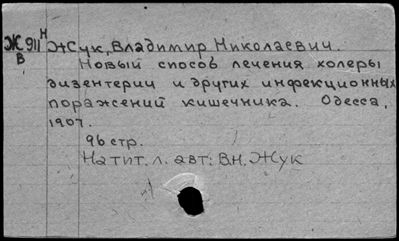 Ж 911 Н
В
Жук, Владимир Николаевич.
Новый способ лечения холеры
дизентерии и других инфекционных
поражений кишечника. Одесса,
1907.
96 стр.
На тит. л. авт: В.Н. Жук